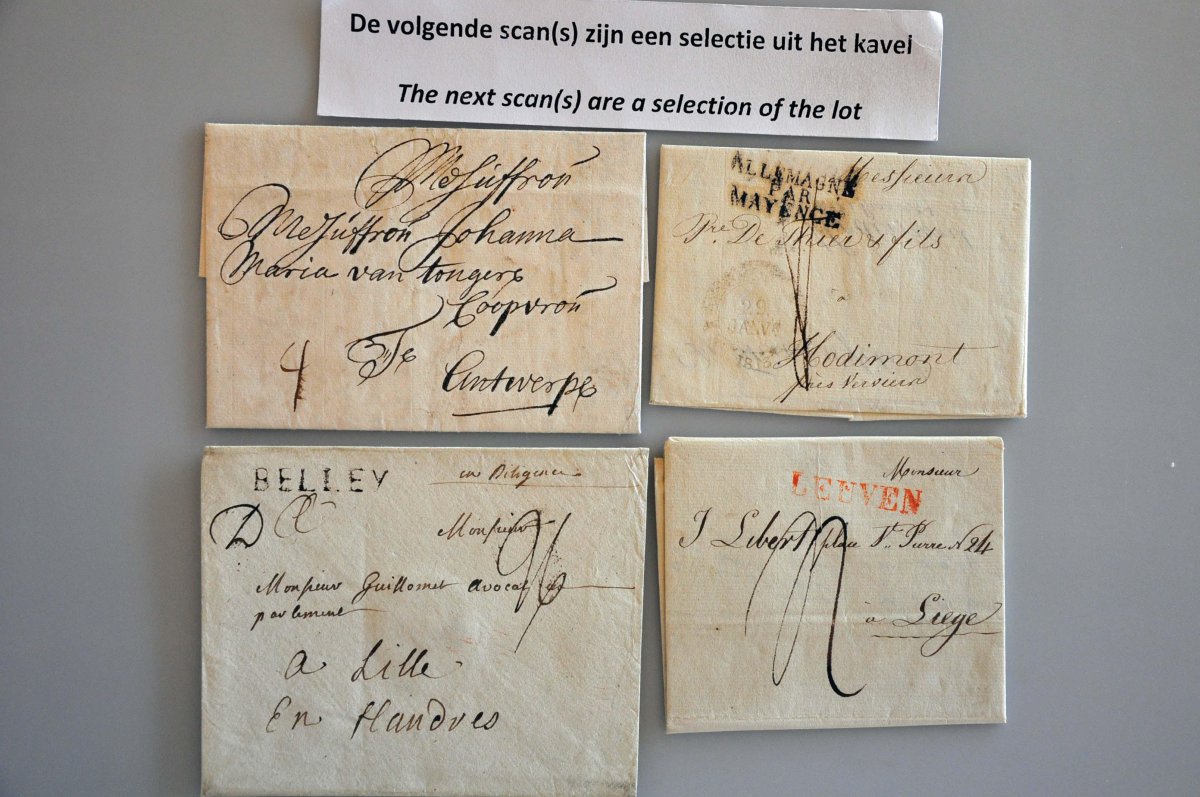 De volgende scan(s) zijn een selectie uit het kavel
The next scan(s) are a selection of the lot
MeJuffrou
MeJuffrou Johanna
Maria van tongere
Coopvrou
4 Te
Antwerpe
ALLEMAGNE
PAR
MAYENCE
Messieurs
Pre. De & fils
29
JANV
à
Hodimont
près Verviers
BELLEY
en Diligence
Monsieur
Monsieur Guillomet avocat
parlement
a Lille
En flandres
Monsieur
LEUVEN
J Libert place St. Pierre N 24
à Liege